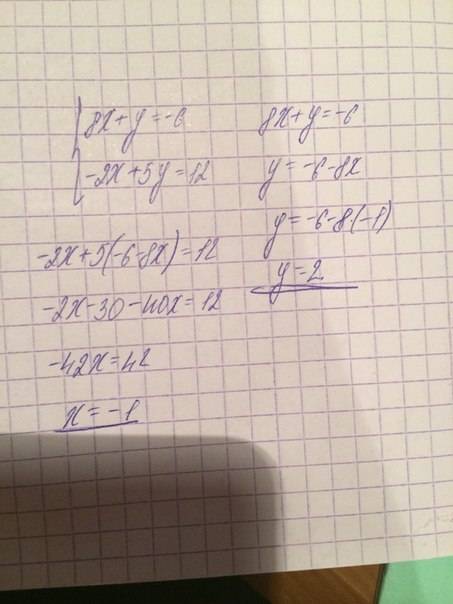 8x+y=-6
-2x+5y=12
-2x+5(-6-8x)=12
-2x-30-40x=12
-42x=42
x=-1
8x+y=-6
y=-6-8x
y=-6-8·(-1)
y=2